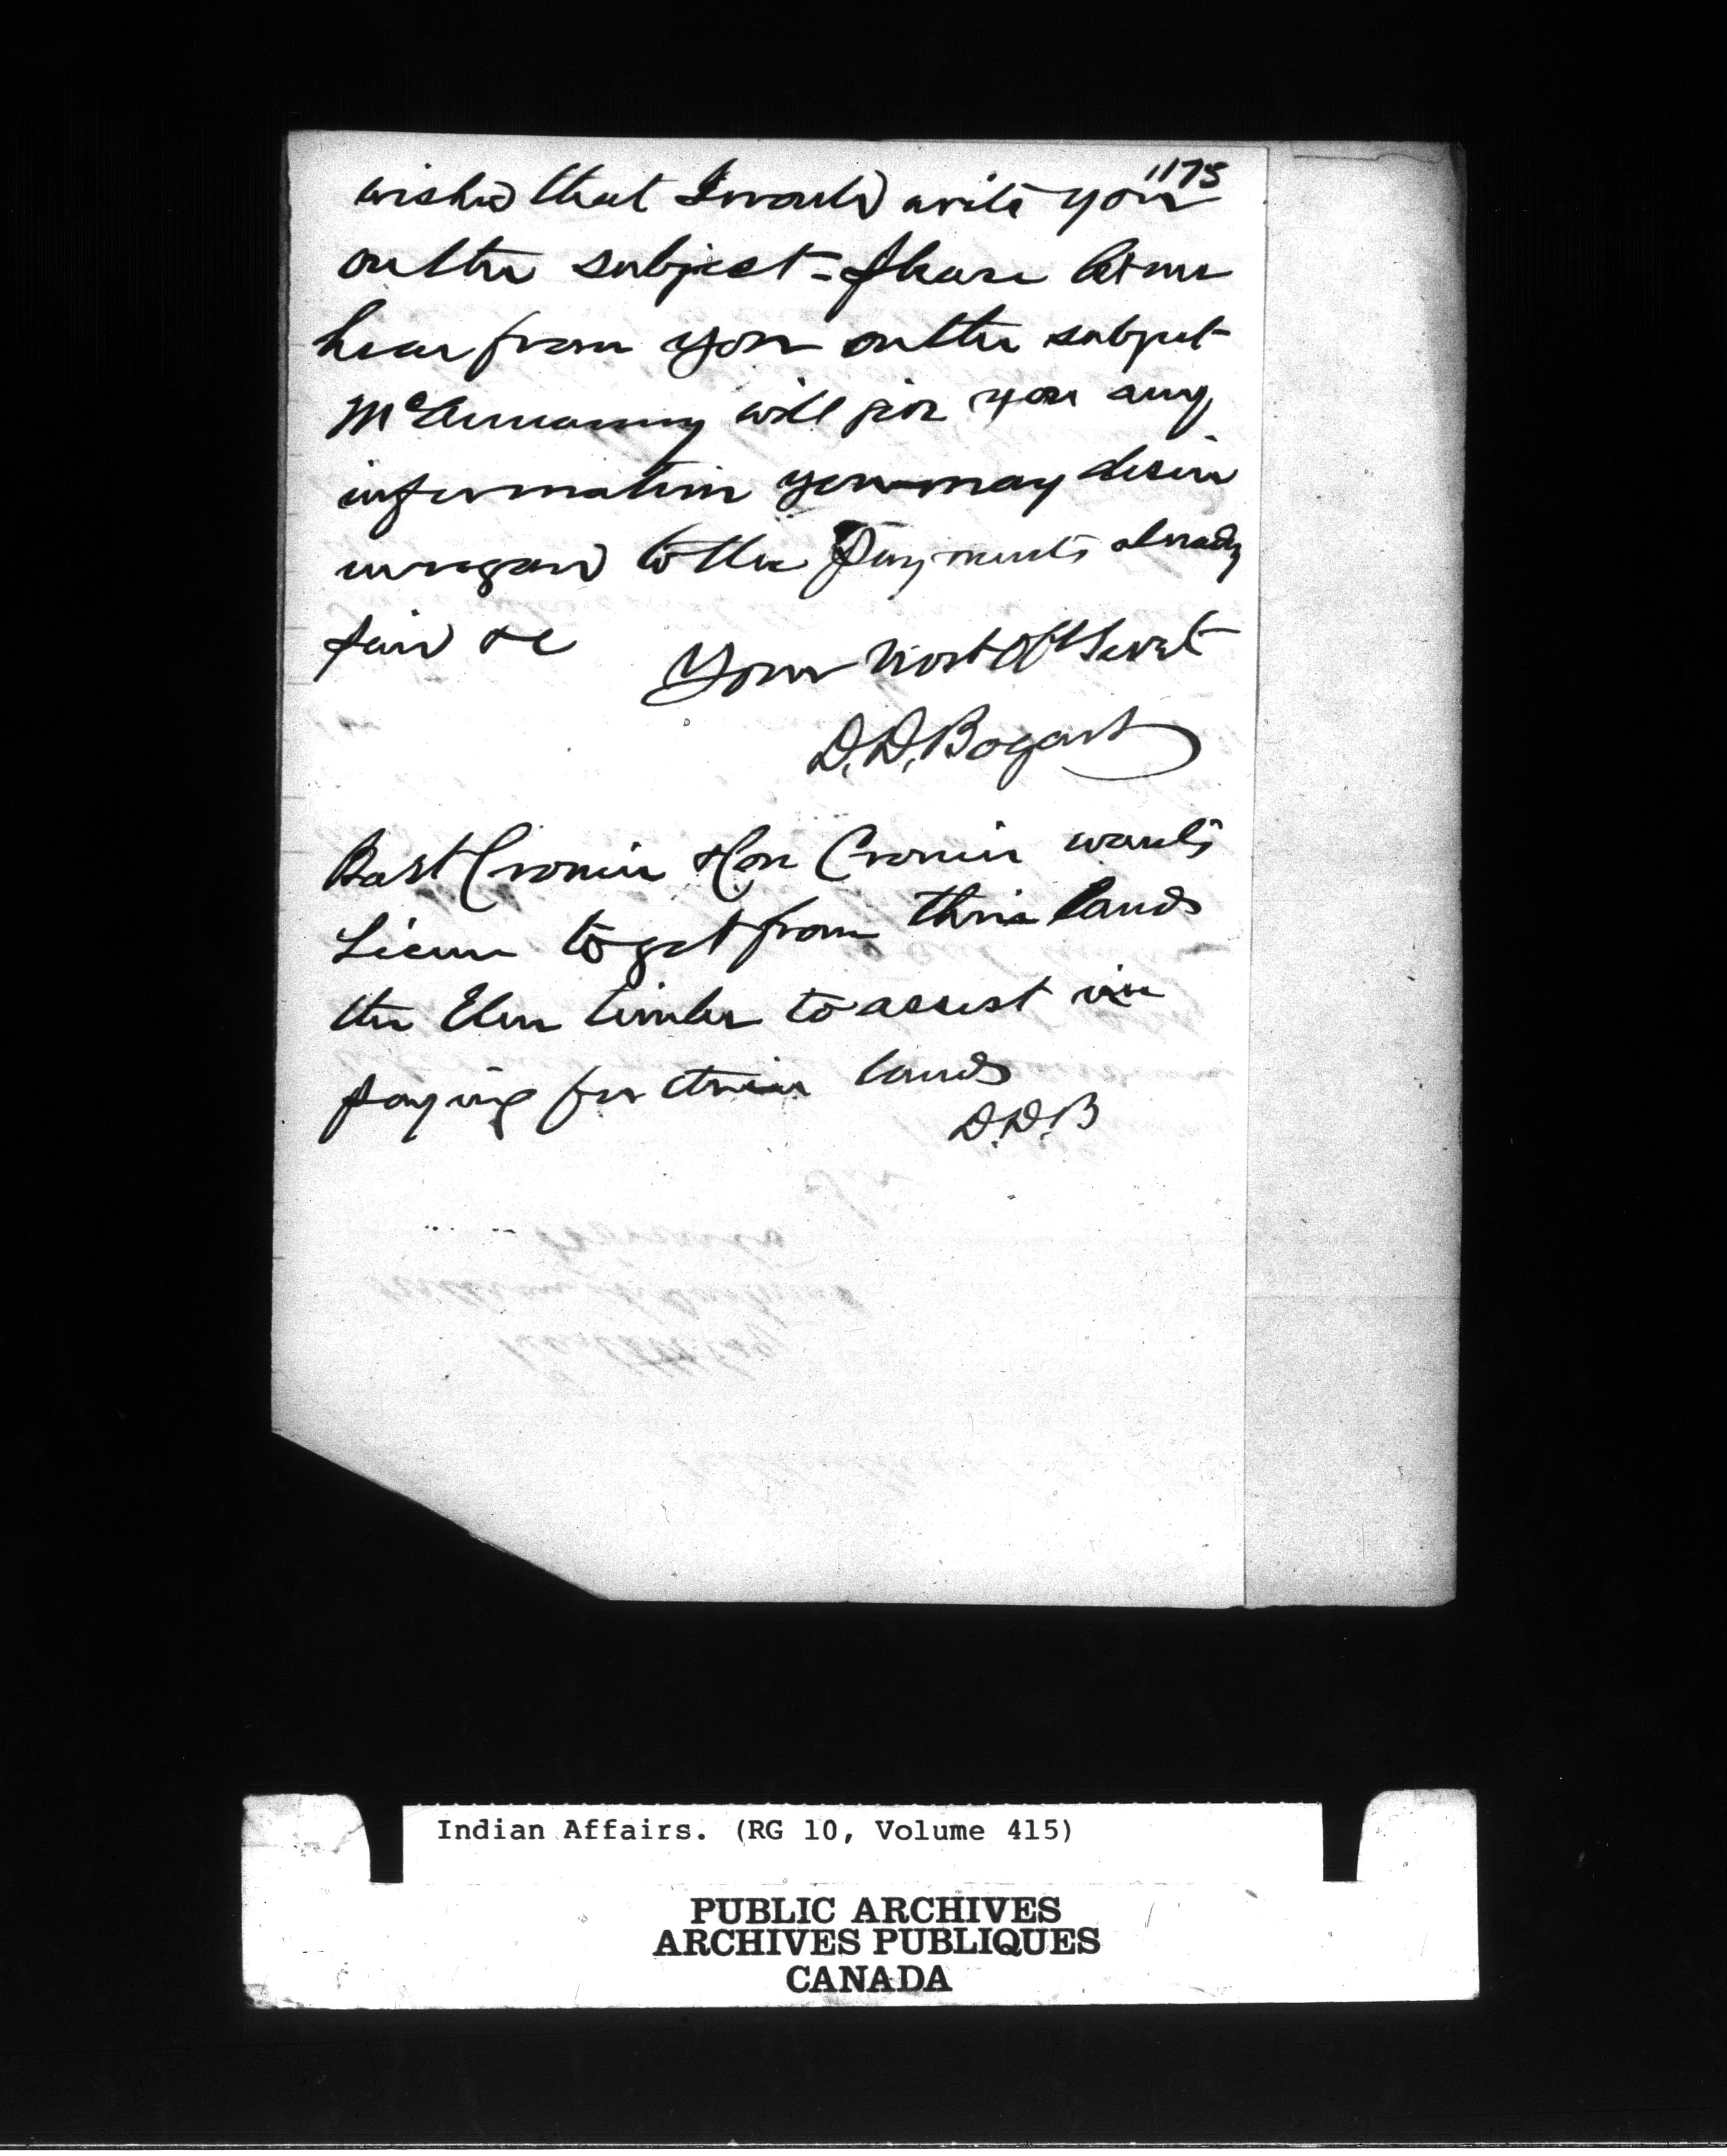 1175
wished that I would write you
on the subject - Please let me
hear from you on the subject
McAnnanny will give you any
information you may desire
in regard to the payments already
paid &c
Your Most Obt Servt
D. D. Bogart
Bast Cronin & Con Cronin wants
License to get from their lands
the Elm timber to assist in
paying for their lands
D. D. B
Indian Affairs. (RG 10, Volume 415)
PUBLIC ARCHIVES
ARCHIVES PUBLIQUES
CANADA